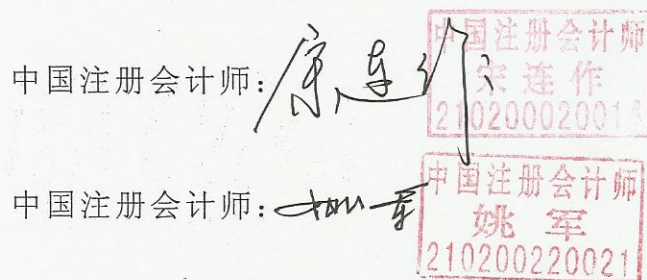 中国注册会计师:
中国注册会计师
宋连作
210200020014
中国注册会计师:姚军
中国注册会计师
姚军
210200220021